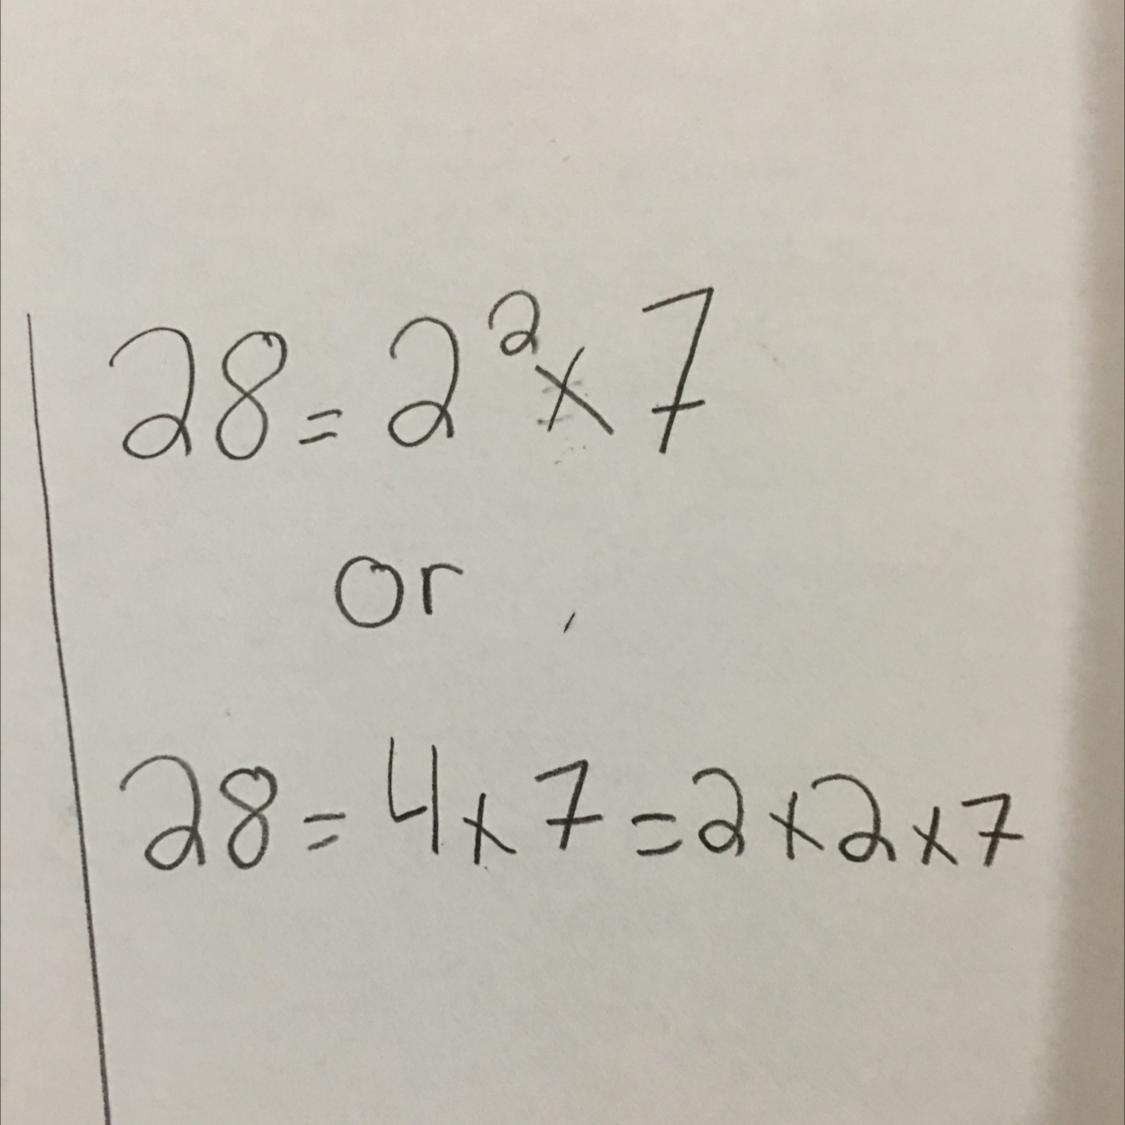 28 = 2² × 7
or
28 = 4 × 7 = 2 × 2 × 7